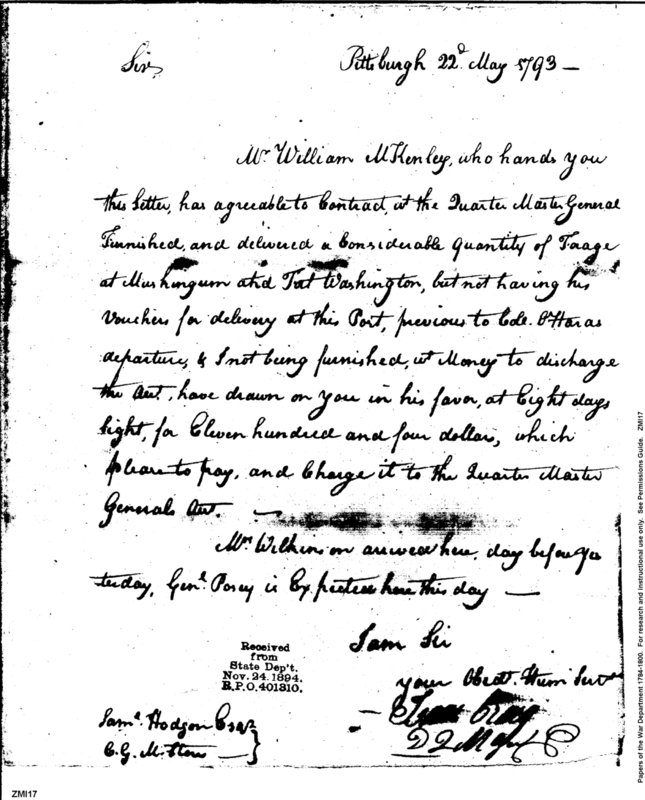 Sir,
Pittsburgh 22d. May 1793 —
Mr. William McKenley, who hands you
this Letter, has agreeable to Contract, wt. the Quarter Master General
Furnished, and delivered a Considerable Quantity of Forage
at Muskingum and Fort Washington, but not having his
Vouchers for delivery at this Post, previous to Colo. O'Haras
departure, & I not being furnished, wt. Money to discharge
the Act., have drawn on you in his favor, at Eight days
Sight, for Eleven hundred and four dollars, which
please to pay, and Charge it to the Quarter Master
Generals Act. —
Mrs. Wilkinson arrived here, day before Yes
terday, Genl. Posey is Expected here this day —
I am Sir
your Obedt. Hum. Servt.
Isaac Craig
D Q M Genl
Received
from
State Dep't.
Nov. 24. 1894.
R.P.O. 401310.
Saml. Hodgdon Esqr.
C. G. M. Stores
ZMI17
Papers of the War Department 1784-1800. For research and instructional use only. See Permissions Guide. ZMI17